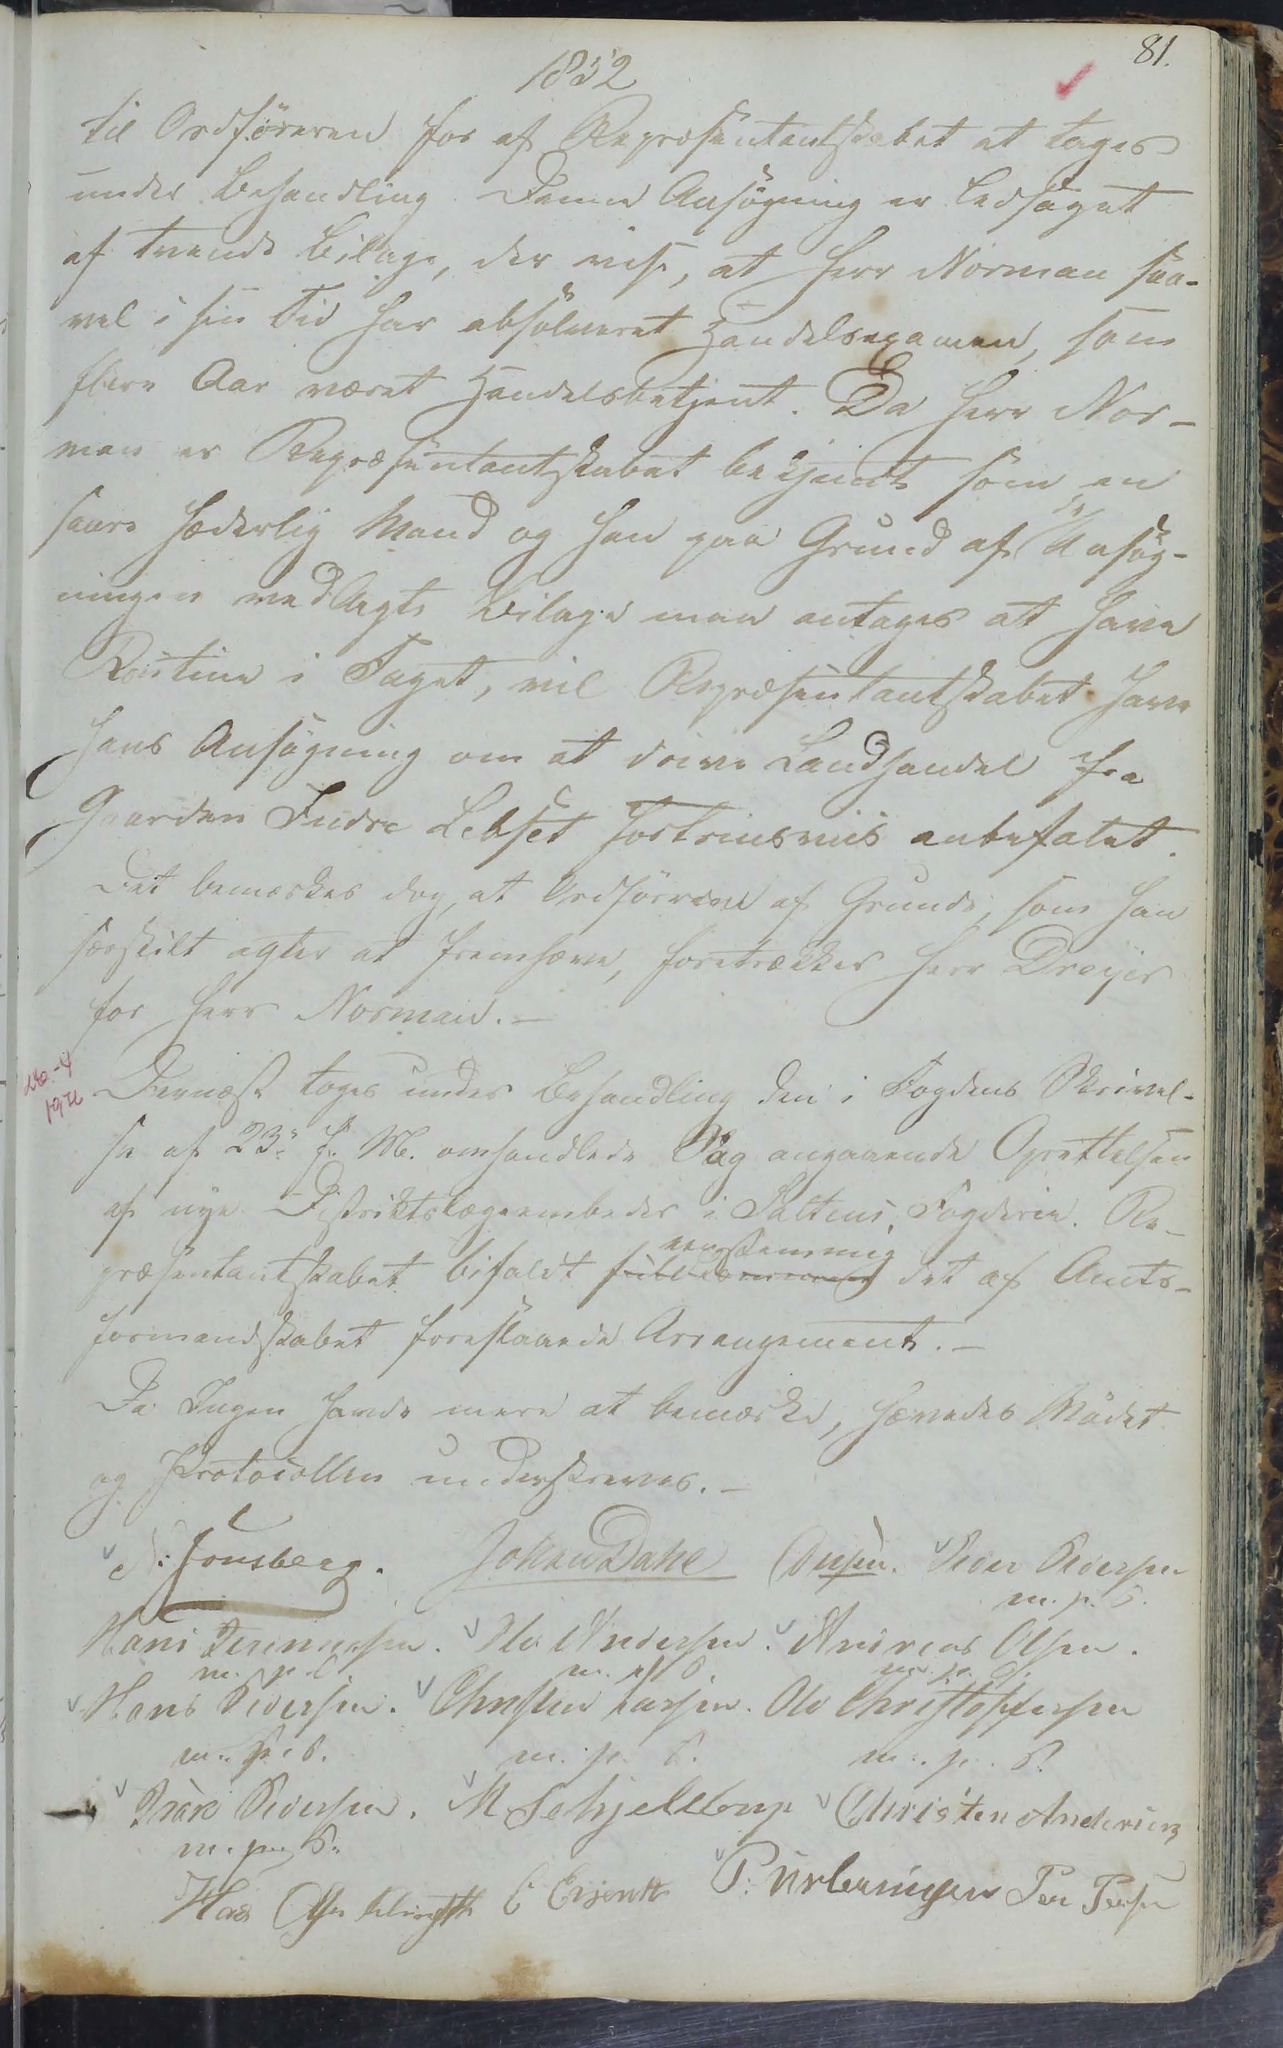 81.
1852
til Ordføreren for af Repræsentantskabet at tages
under Behandling. Denne Ansøgning er ledsaget
af tvende Bilage, der vise, at Herr Norman saa-
vel i sin Tid har absolveret Handelsexamen, som
flere Aar været Handelsbetjent. Da Herr Nor-
man er Repræsentantskabet bekjendt som en
saare hæderlig Mand og han paa Grund af Ansøg-
ningen vedlagte Bilage maa antages at have
Routine i Faget, vil Repræsentantskabet have
hans Ansøgning om at drive Landhandel fra
Gaarden Indre Lekset fortrinsviis anbefalet.
Det bemærkes dog, at Ordføreren af Grunde, som han
særskilt agter at fremhæve, foretrækker Herr Dreyer
for Herr Norman.-
Dernæst toges under Behandling den i Fogdens Skrivel-
se af 23de f. M. omhandlede Sag angaaende Oprettelsen
af nye Distriktslægeembeder i Saltens Fogderie. Re-
præsentantskabet bifaldt eenstemmig det af Amts-
formandskabet foreslaaede Arrangement.-
Da Ingen havde mere at bemærke, hævedes Mødet
og Protocollen underskreves.-
N. Jonsberg. Johan Dahl Peder Pedersen
m. p. P.
Hans . Ole Andersen. Andreas Olsen.
m. p. P. m. p. P. m. p. P.
Hans Pedersen. Christen Larsen. Ole Christophersen
m. p. P. m. p. P. m. p. P.
Pedersen. M Schjelderup Christen Andersen
m. p. P.
Hans Per Persen